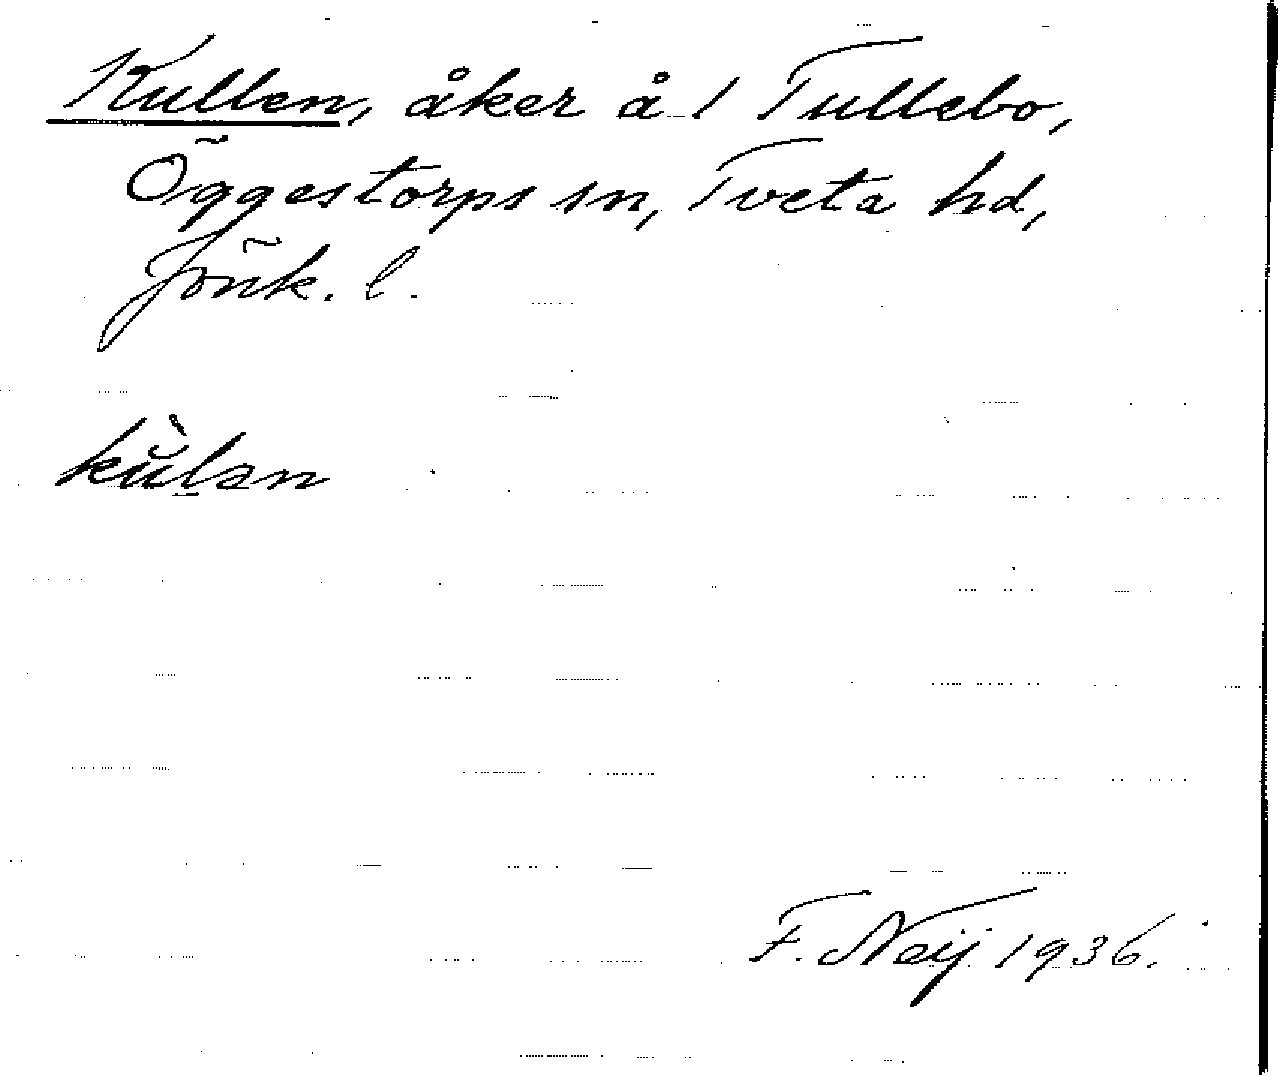 Kullen, åker å 1 Tullebo,
Öggestorps sn, Tveta hd,
Jönk. l.
kùl̠ən
F. Neij 1936.